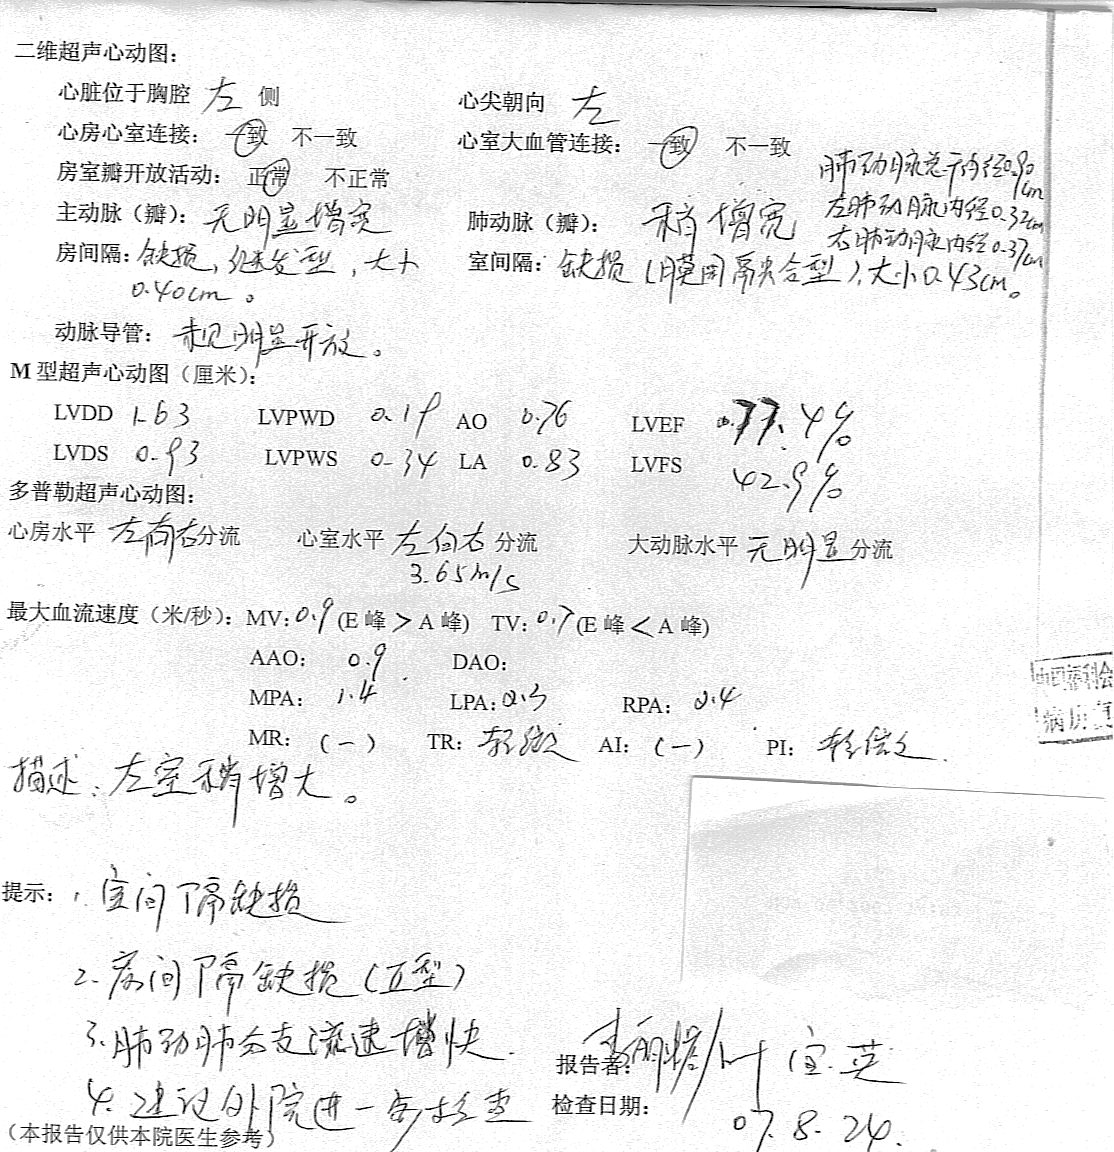 二维超声心动图：
心脏位于胸腔 左 侧 心尖朝向 左
心房心室连接： 一致 不一致 心室大血管连接： 一致 不一致
房室瓣开放活动： 正常 不正常 肺动脉总干内径0.90cm
主动脉（瓣）： 无明显增宽 肺动脉（瓣）： 稍增宽 左肺动脉内径0.32cm
右肺动脉内径0.37cm
房间隔： 缺损，继发型，大小 室间隔： 缺损（膜周融合型），大小0.43cm。
0.40cm。
动脉导管： 未见明显开放。
M 型超声心动图（厘米）：
LVDD 1.63 LVPWD 0.19 AO 0.76 LVEF 77.4%
LVDS 0.93 LVPWS 0.34 LA 0.83 LVFS 42.9%
多普勒超声心动图：
心房水平 左向右分流 心室水平 左向右 分流 大动脉水平 无明显 分流
3.65m/s
最大血流速度（米/秒）： MV: 0.9 (E 峰 > A 峰) TV: 0.7 (E 峰 < A 峰)
AAO： 0.9 DAO：
MPA： 1.4 LPA： 0.3 RPA： 0.4
MR： (一) TR： 轻微 AI： (一) PI： 轻微
描述：左室稍增大。
提示： 1. 室间隔缺损
2. 房间隔缺损（II型）
3. 肺动脉分支流速增快
报告者： 叶宝英
4. 建议外院进一步检查 检查日期：
07.8.24.
（本报告仅供本院医生参考）